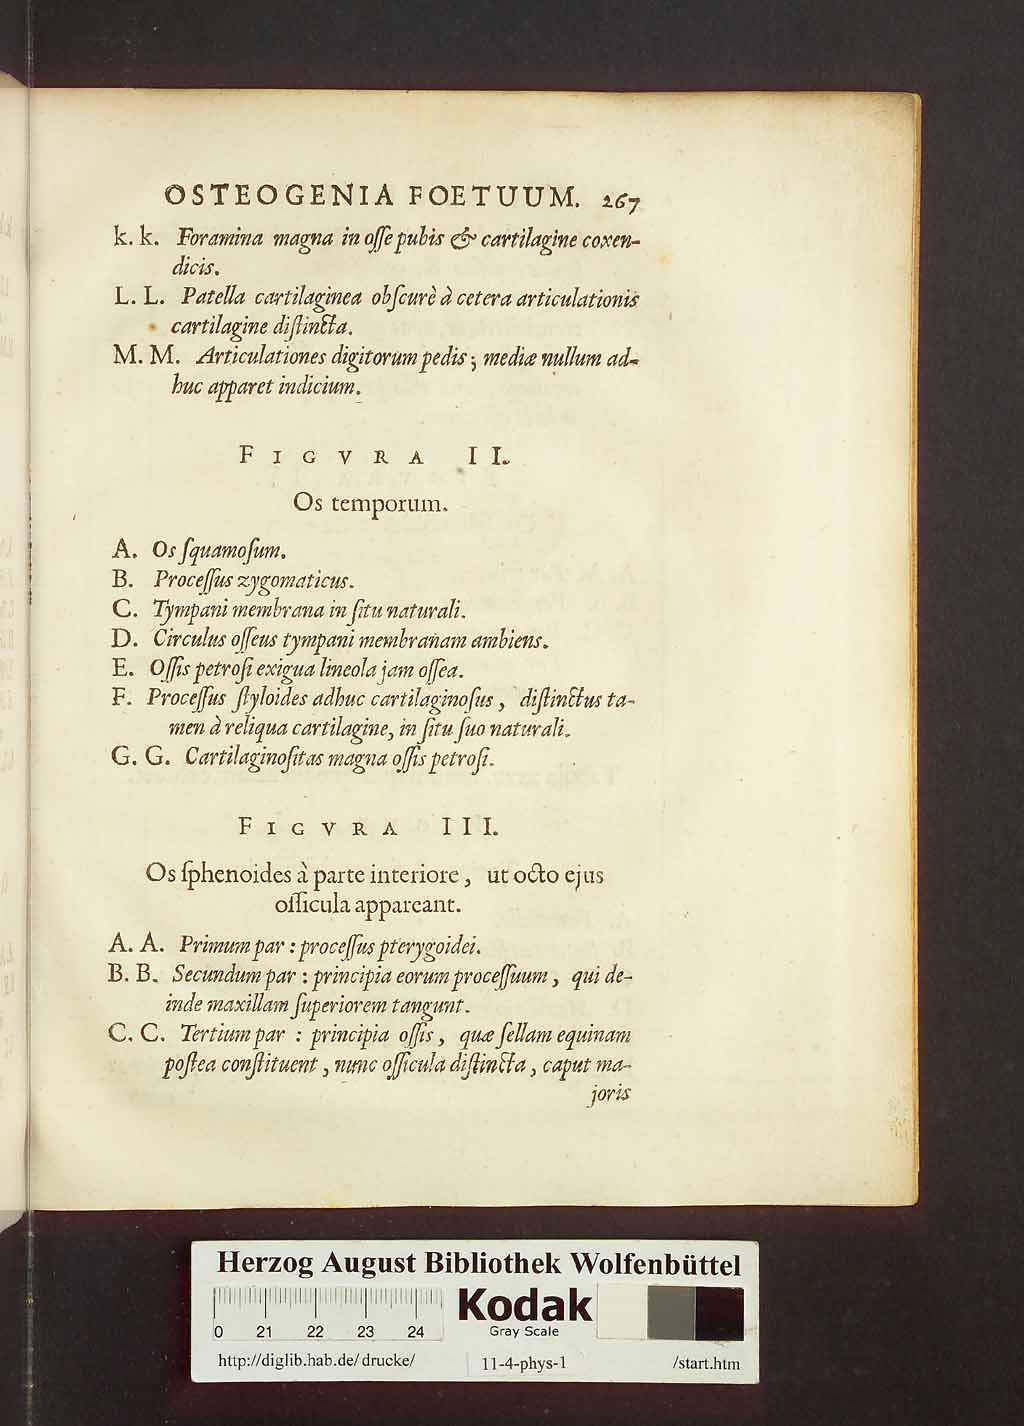 OSTEOGENIA FOETUUM. 267
k. k. Foramina magna in oſſe pubis & cartilagine coxen-
dicis.
L. L. Patella cartilaginea obſcurè à cetera articulationis
cartilagine diſtincta.
M. M. Articulationes digitorum pedis; mediæ nullum ad-
huc apparet indicium.
FIGVRA II.
Os temporum.
A. Os ſquamoſum.
B. Proceſſus zygomaticus.
C. Tympani membrana in ſitu naturali.
D. Circulus oſſeus tympani membranam ambiens.
E. Oſſis petroſi exigua lineola jam oſſea.
F. Proceſſus ſtyloides adhuc cartilaginoſus, diſtinctus ta-
men à reliqua cartilagine, in ſitu ſuo naturali.
G. G. Cartilaginoſitas magna oſſis petroſi.
FIGVRA III.
Os ſphenoides à parte interiore, ut octo ejus
oſſicula appareant.
A. A. Primum par: proceſſus pterygoidei.
B. B. Secundum par: principia eorum proceſſuum, qui de-
inde maxillam ſuperiorem tangunt.
C. C. Tertium par: principia oſſis, quæ ſellam equinam
poſtea conſtituent, nunc oſſicula diſtincta, caput ma-
joris
Herzog August Bibliothek Wolfenbüttel
Kodak
Gray Scale
0 21 22 23 24
http://diglib.hab.de/drucke/ 11-4-phys-1 /start.htm